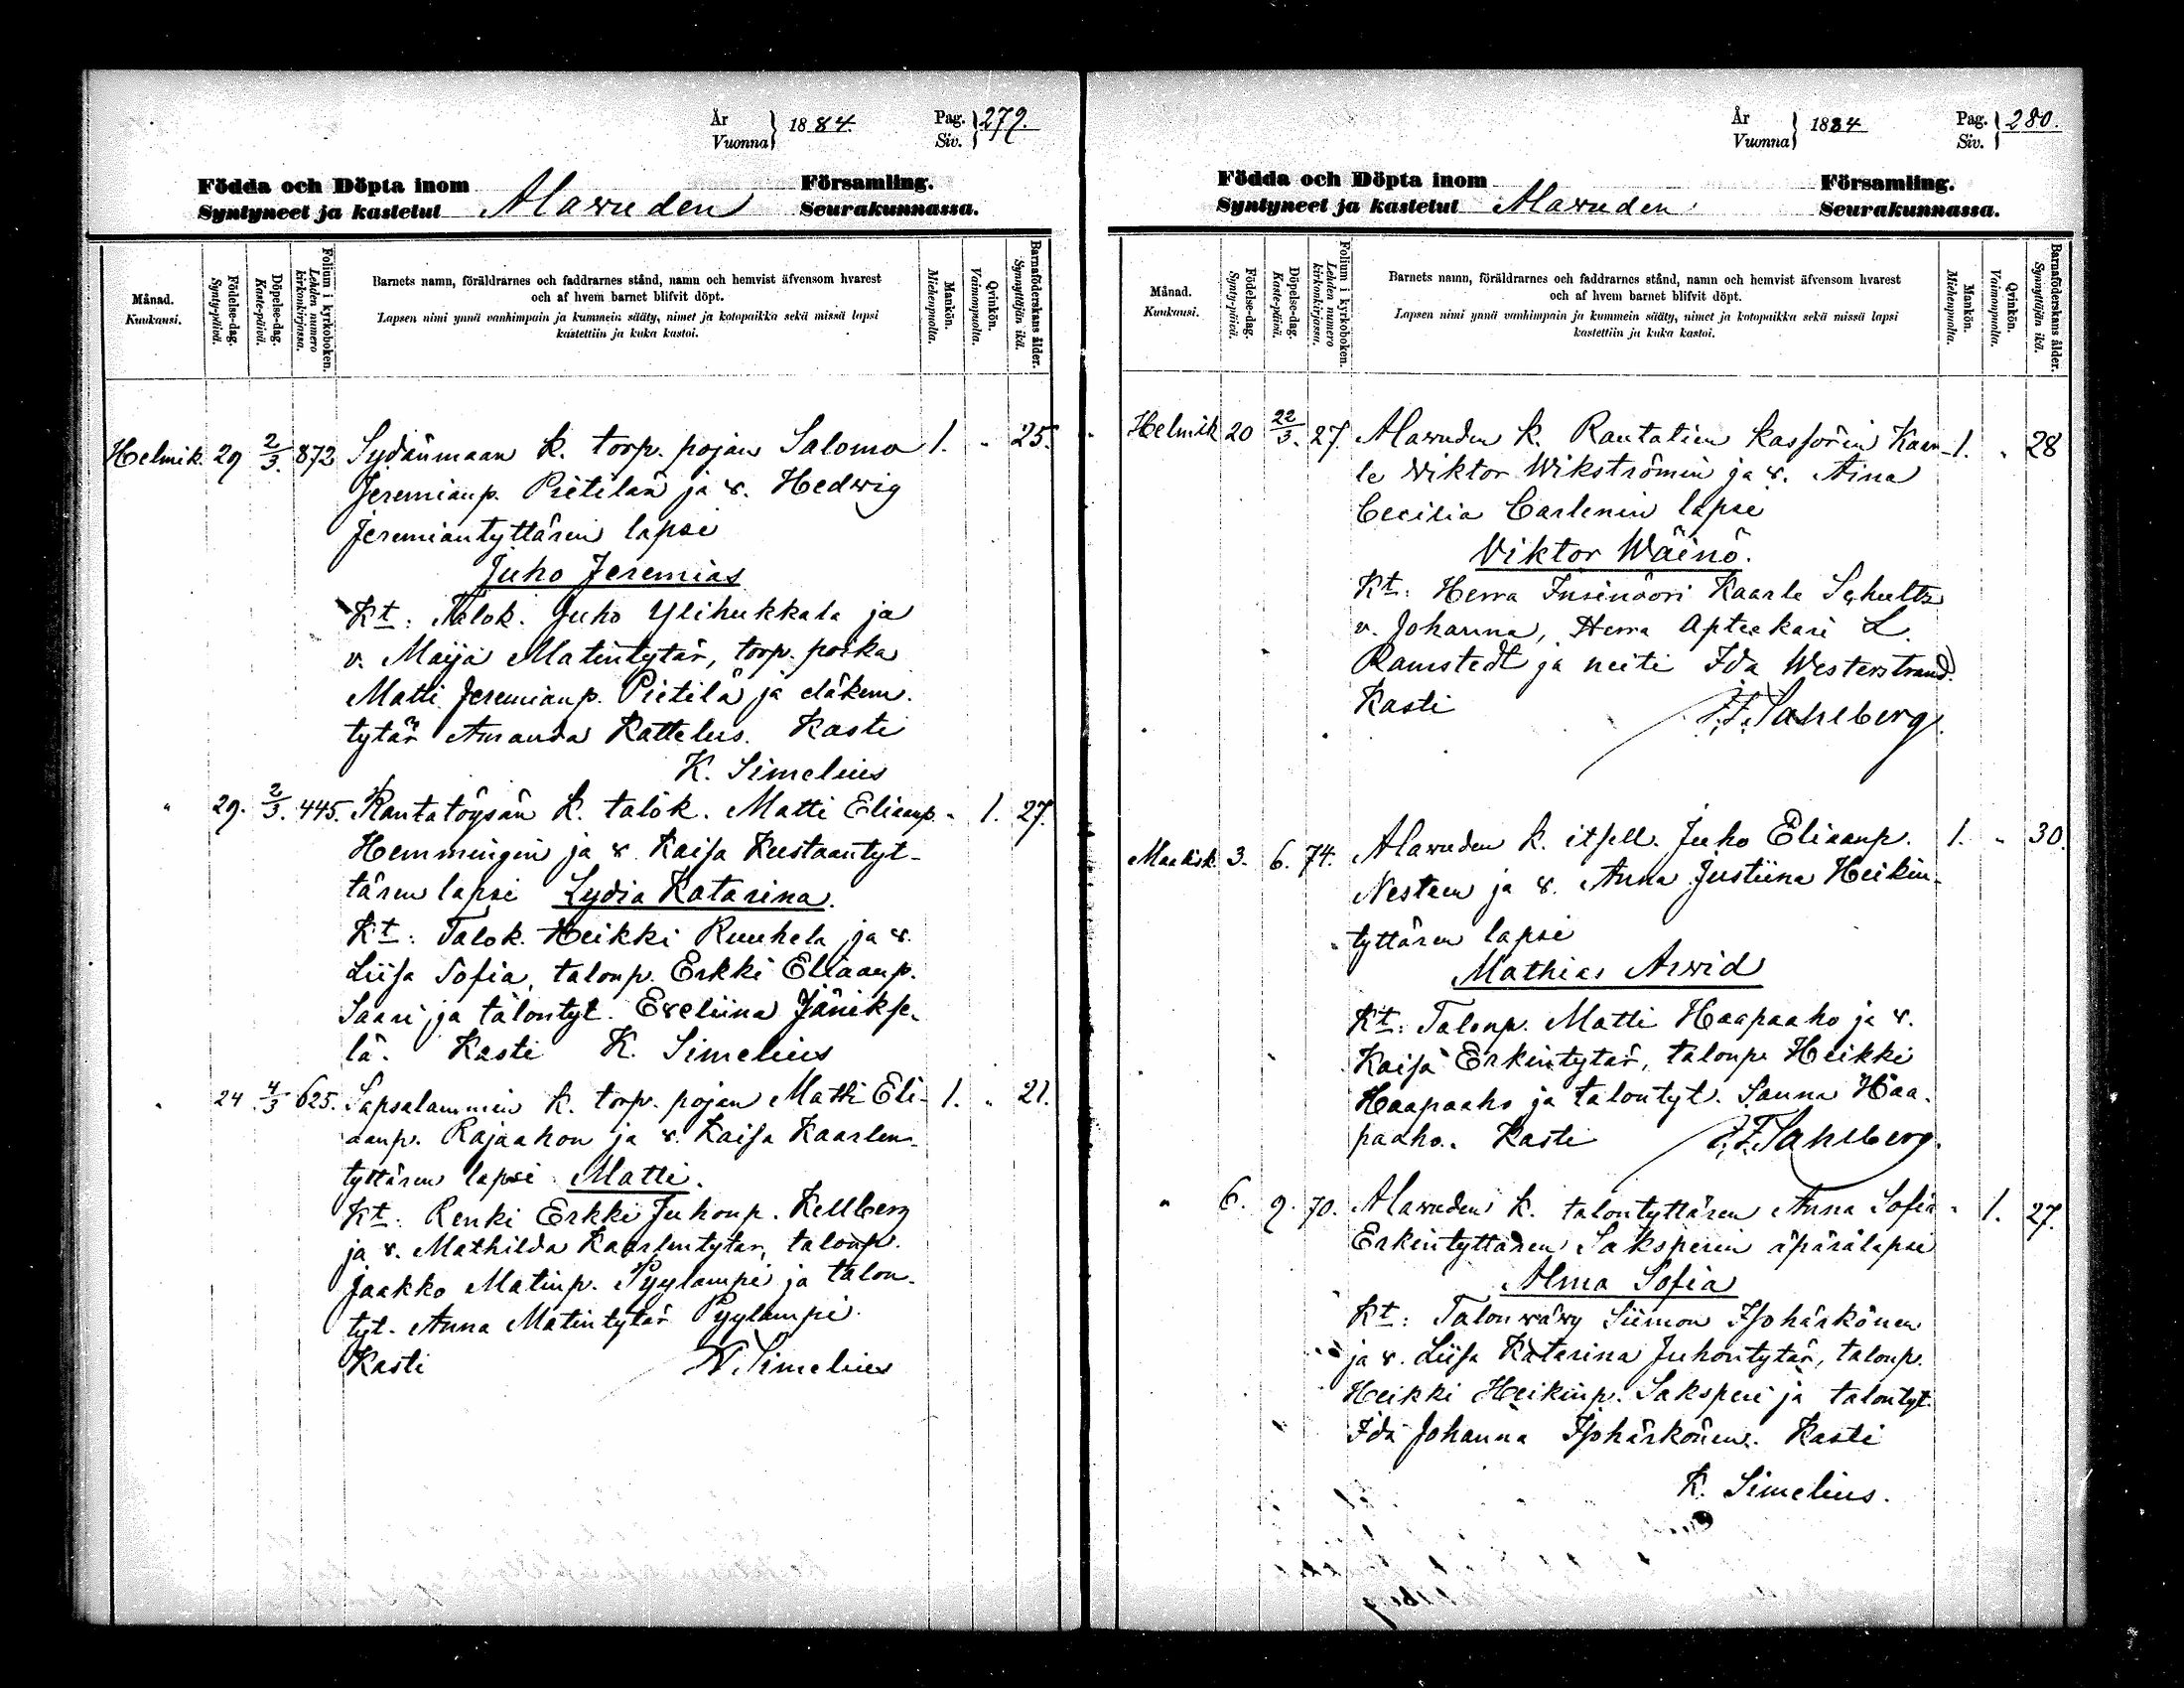 År
Vuonna } 1884. Pag.
Siv. } 279.
Födda och Döpta inom Församling.
Syntyneet ja kastetut Alavuden Seurakunnassa.
Månad.
Kuukausi.
Födelse-dag.
Synty-päivä.
Döpelse-dag.
Kaste-päivä.
Folium i kyrkoboken.
Lehden numero
kirkonkirjassa.
Barnets namn, föräldrarnes och faddrarnes stånd, namn och hemvist äfvensom hvarest
och af hvem barnet blifvit döpt.
Lapsen nimi ynnä vanhimpain ja kummein sääty, nimet ja kotopaikka sekä missä lapsi
kastettiin ja kuka kastoi.
Mankön.
Miehenpuolia.
Qvinkön.
Vaimonpuolia.
Barnaföderskans ålder.
Synnyttäjän ikä.
Helmik 29 2/3. 872 Sydänmaan k. torp. pojan Salomo 1. " 25.
Jeremianp. Pietilän ja v. Hedwig
Jeremiantyttären lapsi
Juho Jeremias
Kt: Talok. Juho Ylihukkala ja
v. Maija Matintytär, torp. poika
Matti Jeremianp. Pietilä ja eläkem.
tytär Amanda Kattelus. Kasti
K. Simelius
" 29. 2/3. 445. Rantatöysän k. talok. Matti Eliaanp. " 1. 27.
Hemmingin ja v. Kaisa Kustaantyt-
tären lapsi Lydia Katarina.
Kt: Talok. Heikki Ruuhela ja v.
Liisa Sofia, talonp. Erkki Eliaanp.
Saari ja talontyt. Eveliina Jänikse-
lä. Kasti K. Simelius
" 24 4/3 625. Sapsalammin k. torp. pojan Matti Eli- 1. " 21.
aanp. Rajaahon ja v. Kaisa Kaarlen-
tyttären lapsi Matti.
Kt: Renki Erkki Juhonp. Kellberg
ja v. Mathilda Kaarlentytar, talonp.
Jaakko Matinp. Pyylampi ja talon-
tyt. Anna Matintytär Pyylampi.
Kasti K. Simelius
År
Vuonna } 1884 Pag.
Siv. } 280.
Födda och Döpta inom Församling.
Syntyneet ja kastetut Alavuden Seurakunnassa.
Månad.
Kuukausi.
Födelse-dag.
Synty-päivä.
Döpelse-dag.
Kaste-päivä.
Folium i kyrkoboken.
Lehden numero
kirkonkirjassa.
Barnets namn, föräldrarnes och faddrarnes stånd, namn och hemvist äfvensom hvarest
och af hvem barnet blifvit döpt.
Lapsen nimi ynnä vanhimpain ja kummein sääty, nimet ja kotopaikka sekä missä lapsi
kastettiin ja kuka kastoi.
Mankön.
Miehenpuolia.
Qvinkön.
Vaimonpuolia.
Barnaföderskans ålder.
Synnyttäjän ikä.
Helmik 20 22/3. 27. Alavuden k. Rautatien kassörin Kaar- 1. " 28
le Viktor Wikströmin ja v. Aina
Cecilia Carlenin lapsi
Viktor Wäinö.
Kt: Herra Insinööri Kaarle Schultz
v. Johanna, Herra Apteekari L.
Ramstedt ja neiti Ida Westerstrand.
Kasti F. F. Sahlberg.
Maalisk. 3. 6. 74. Alavuden k. itsell. Juho Eliaanp. 1. " 30.
Nesteen ja v. Anna Justiina Heikin-
tyttären lapsi
Mathias Arvid
Kt: Talonp. Matti Haapaaho ja v.
Kaisa Erkintytär, talonp. Heikki
Haapaaho ja talontyt. Sanna Haa-
paaho. Kasti F. F. Sahlberg.
" 6. 9. 70. Alavuden k. talontyttären Anna Sofia " 1. 27.
Erkintyttären Saksperin äpärälapsi
Alma Sofia
Kt: Talonvävy Siimon Isohärkönen
ja v. Liisa Katarina Juhontytär, talonp.
Heikki Heikinp. Saksperi ja talontyt.
Ida Johanna Isohärkönen. Kasti
K. Simelius.